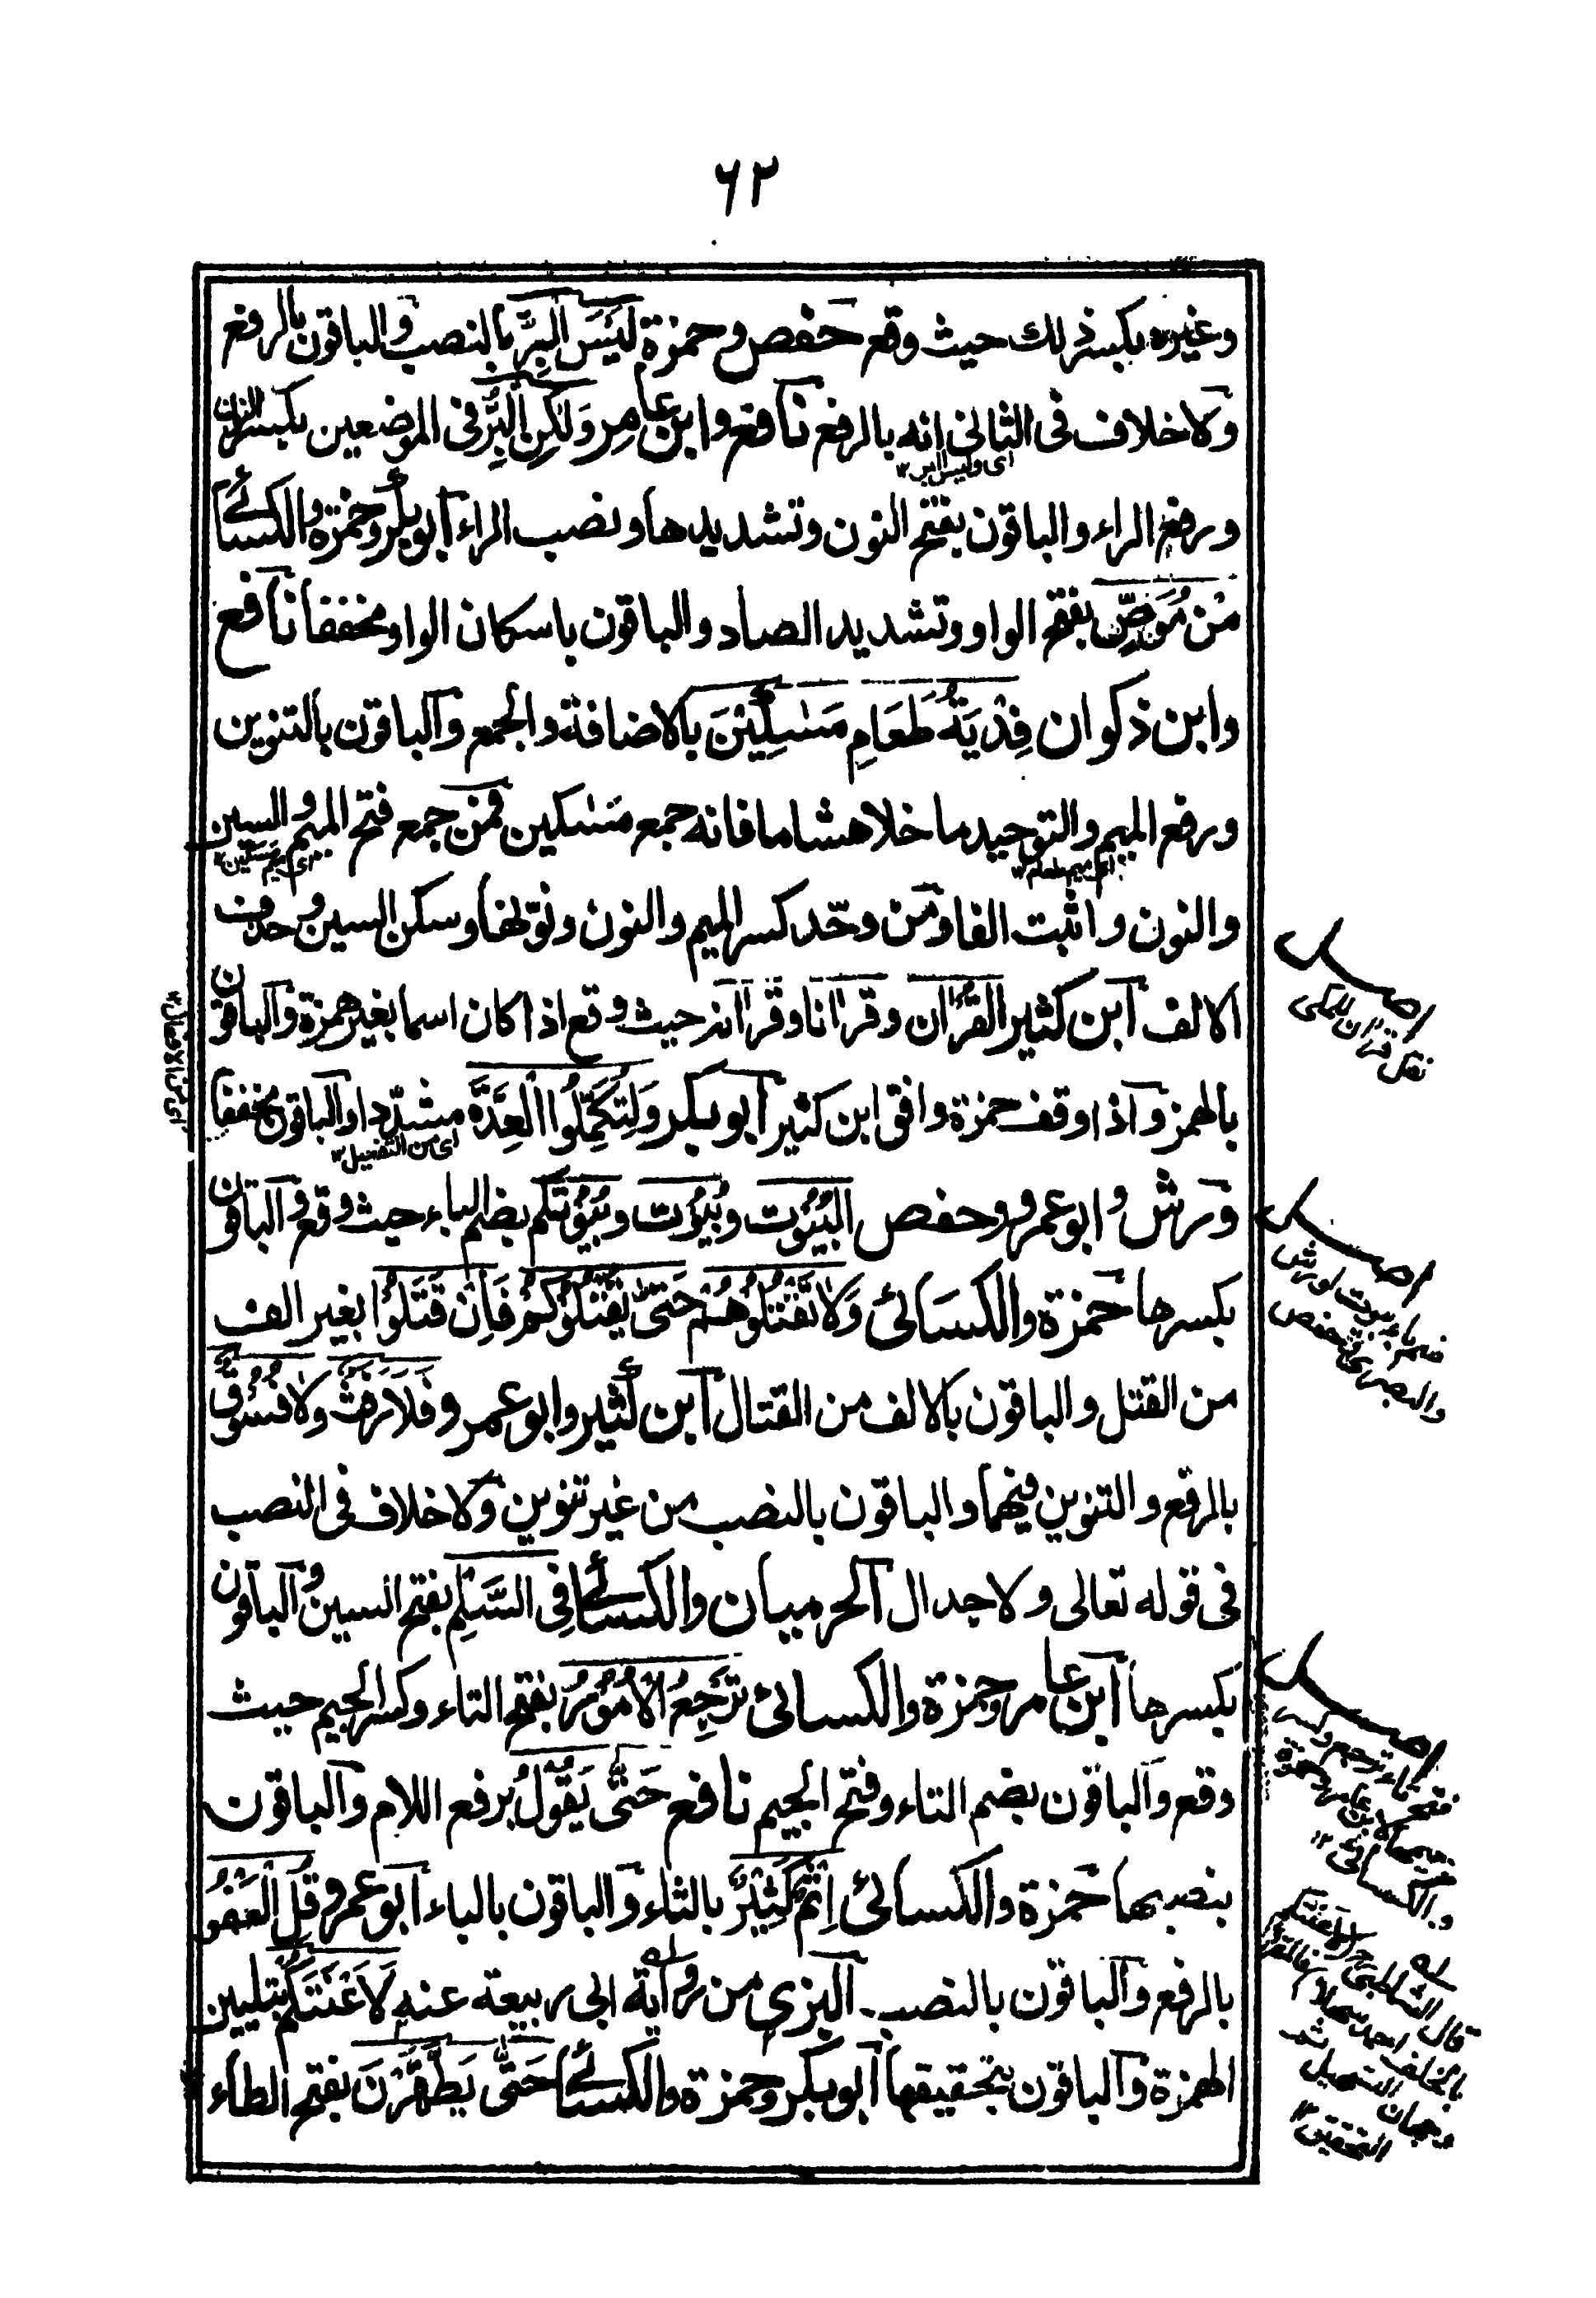 ٦٢
وغيره بكسر ذلك حيث وقع حفص وحمزة لَيْسَ الْبِرَّ بالنصب والباقون بالرفع
ولا خلاف فى الثانى انه بالرفع نافع وابن عامر وَلٰكِنِ الْبِرُّ فى الموضعين بكسر النون
اى وليس البر ١٢
ورفع الراء والباقون بفتح النون وتشديدها ونصب الراء ابو بكر وحمزة والكسائى
مِنْ مُوَصٍّ بفتح الواو وتشديد الصاد والباقون باسكان الواو مخففا نافع
وابن ذكوان فِدْيَةُ طَعَامِ مَسٰكِيْنَ بالاضافة والجمع والباقون بالتنوين
ورفع الميم والتوحيد ما خلا هشاما فانه جمع مسٰكين فمن جمع فتح الميم والسين
اى ميم طعام ١٢
اى ميم مسكين ١٢
والنون واثبت الفا ومن وحّد كسر الميم والنون ونوّنها وسكن السين وحذف
الالف ابن كثير القُرَان وقرانا وقرانه حيث وقع اذا كان اسما بغير همزة والباقون
بالهمز واذا وقف حمزة وافق ابن كثير ابو بكر وَلِتُكَمِّلُوا الْعِدَّةَ مشدّدا والباقون مخففا
اى من التفعيل ١٢
اى من الافعال ١٢
ورش وابو عمرو وحفص الْبُيُوْت وبُيُوْت وبُيُوْتكم بضم الباء حيث وقع والباقون
بكسرها حمزة والكسائى وَلَا تَقْتُلُوْهُمْ حَتّٰى يَقْتُلُوْكُمْ فَاِنْ قَتَلُوْا بغير الف
من القتل والباقون بالالف من القتال ابن كثير وابو عمرو فلا رفثٌ ولا فسُوْقٌ
بالرفع والتنوين فيهما والباقون بالنصب من غير تنوين ولا خلاف فى النصب
فى قوله تعالى ولا جدال الحرميان والكسائى فِى السَّلْمِ بفتح السين والباقون
بكسرها ابن عامر وحمزة والكسائى تَرْجِعُ الْاُمُوْرُ بفتح التاء وكسر الجيم حيث
وقع والباقون بضم التاء وفتح الجيم نافع حَتّٰى يَقُوْلُ برفع اللام والباقون
بنصبها حمزة والكسائى اِثْمٌ كَثِيْرٌ بالثاء والباقون بالباء ابو عمرو قُلِ الْعَفْوُ
بالرفع والباقون بالنصب۔ البزى من رواية ابى ربيعة عنه لَاَعْنَتَكُمْ بتليين
الهمزة والباقون بتحقيقها ابو بكر وحمزة والكسائى حَتّٰى يَطَّهَّرْنَ بفتح الطاء
نقل قران للمكى
ضم باء بيوت لورش
والبصرى وحفص
فتح تاء ترجع وكسر
جيمها لابن عامر وحمزة
والكسائى ١٢
قال الشاطبى